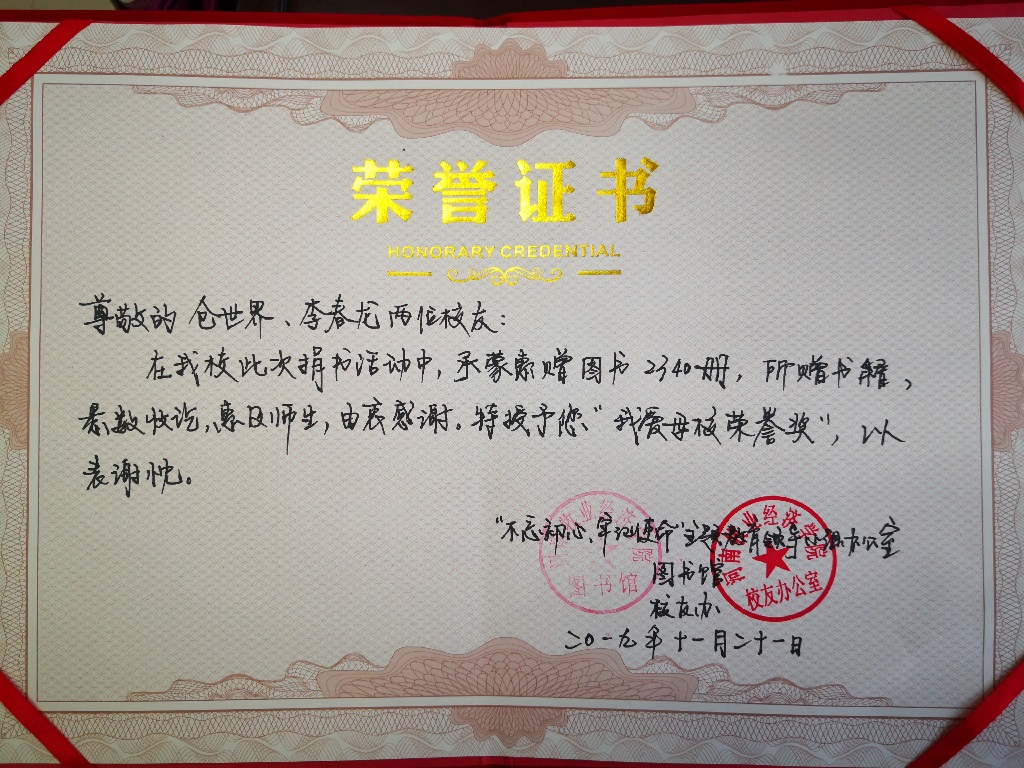 荣誉证书
HONORARY CREDENTIAL
尊敬的仓世界、李春龙两位校友：
在我校此次捐书活动中，承蒙惠赠图书2340册，所赠书籍，
悉数收讫，惠及师生，由衷感谢。特授予您“我爱母校荣誉奖”，以
表谢忱。
“不忘初心、牢记使命”主题教育领导小组办公室
图书馆
校友办
二〇一九年十一月二十一日
业经济学院
图书馆
河南牧业经济学院
校友办公室